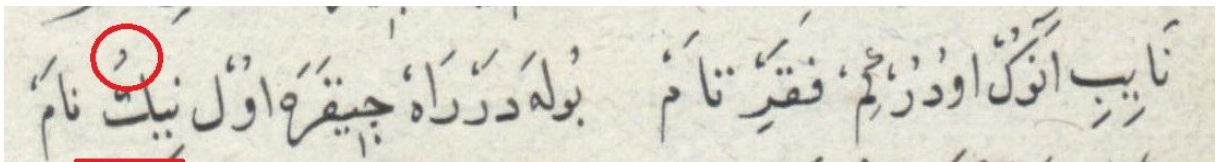 نَايِبِ اَنوُكْ اودُرْ كِمْ فقرِ تامْ بُولَه دَرْرَاهْ چِيقَرَه اوُلْ نيكُ نامْ